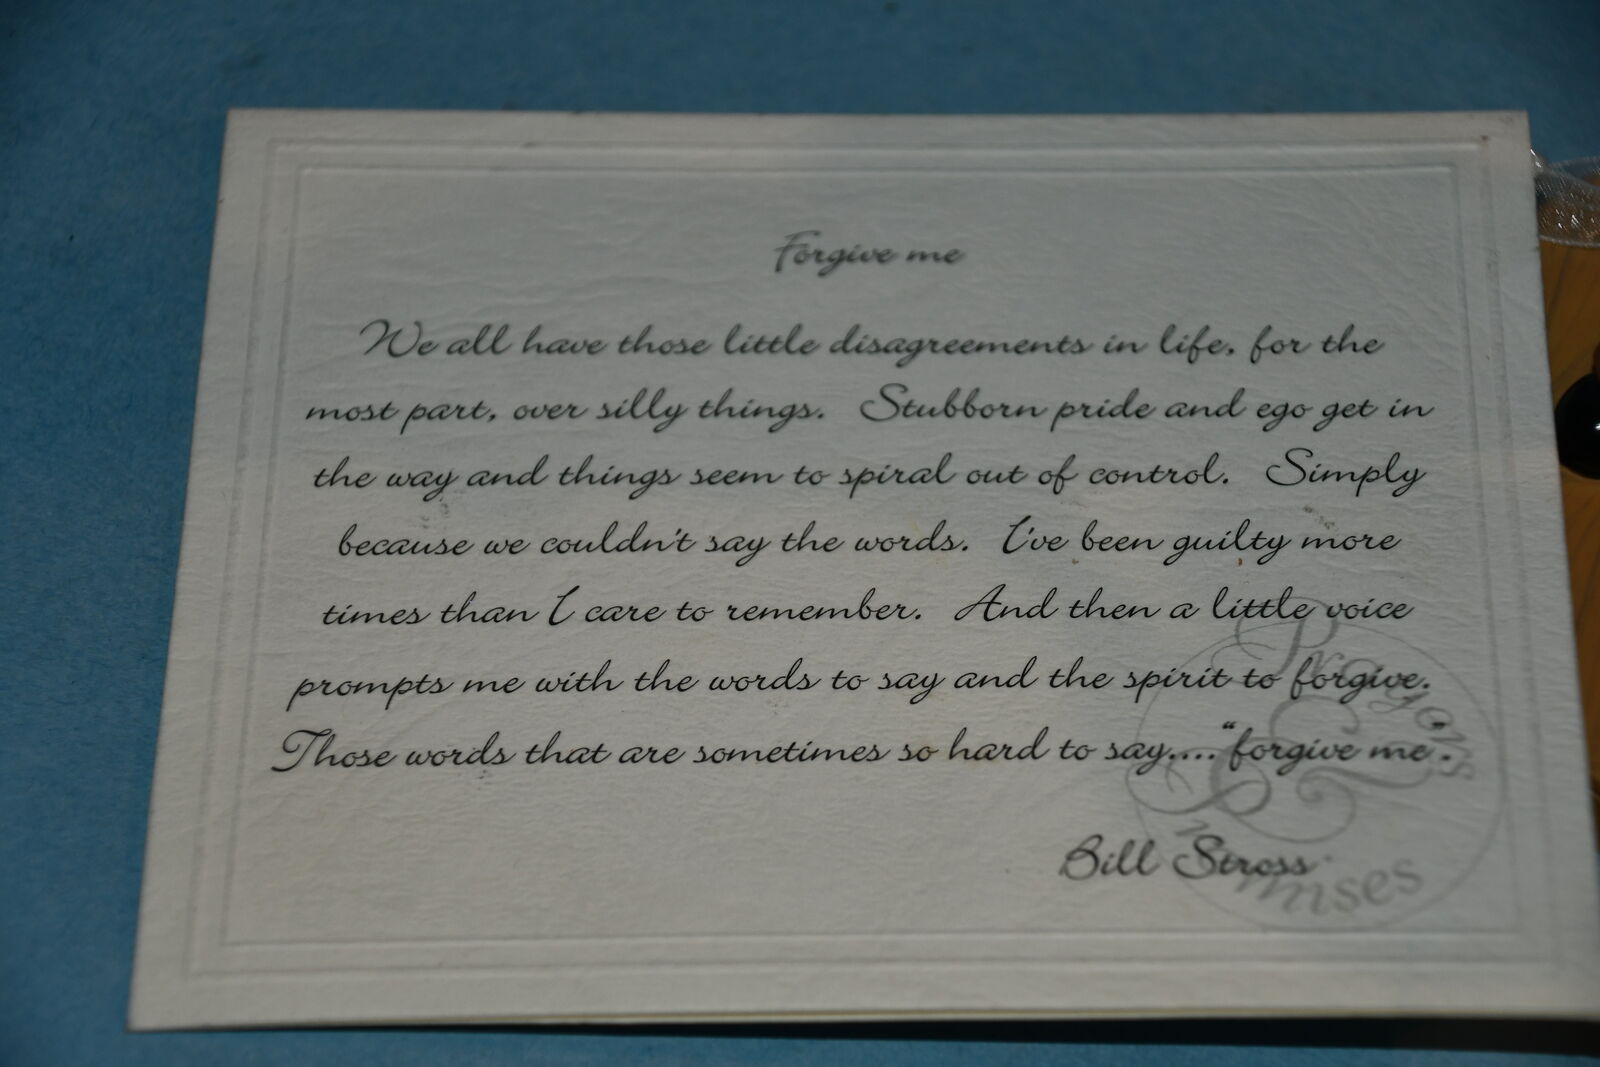 Forgive me
We all have those little disagreements in life, for the
most part, over silly things. Stubborn pride and ego get in
the way and things seem to spiral out of control. Simply
because we couldn't say the words. I've been guilty more
times than I care to remember. And then a little voice
prompts me with the words to say and the spirit to forgive.
Those words that are sometimes so hard to say...."forgive me".
Bill Stross
Prayers
&
Promises